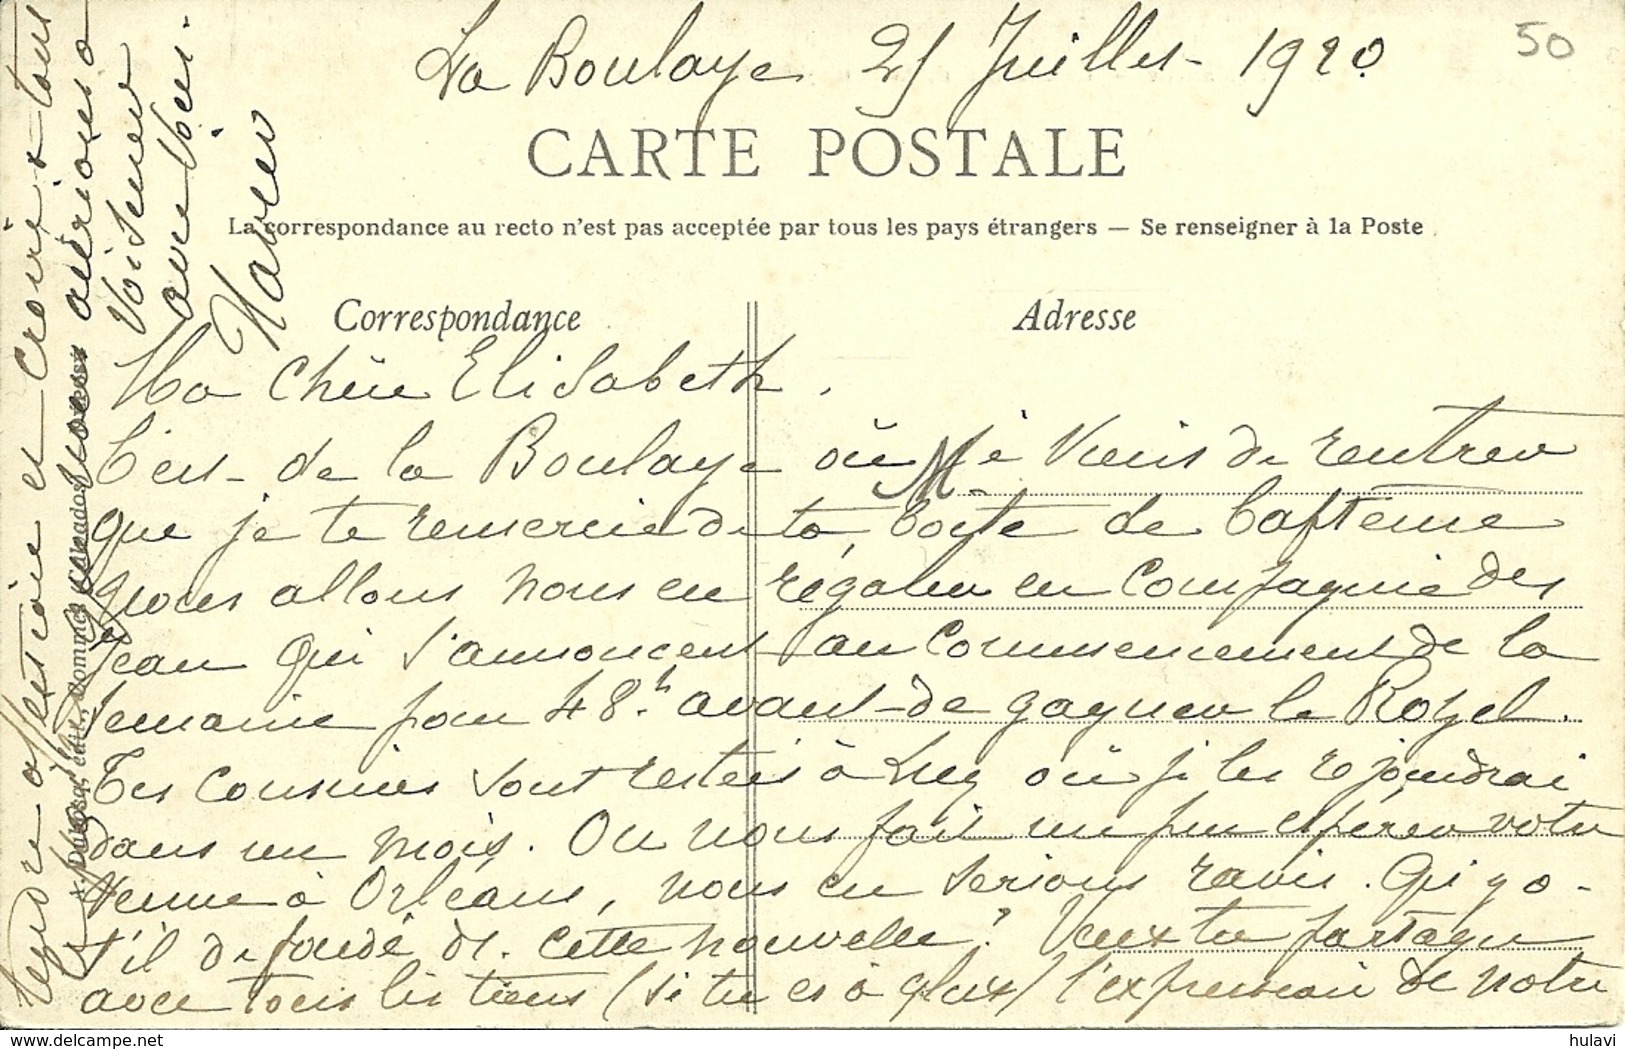 La Boulaye 25 Juillet 1920
50
CARTE POSTALE
La correspondance au recto n'est pas acceptée par tous les pays étrangers — Se renseigner à la Poste
Correspondance
Adresse
Ma chère Elisabeth,
C'est de la Boulaye où je viens de rentrer
que je te remercie de ta boîte de baptême
nous allons nous en régaler en compagnie des
Jean qui s'annoncent au commencement de la
semaine pour 48h. avant de gagner le Rozel.
Tes cousines sont restées à Luc où je les rejoindrai
dans un mois. On nous fait un peu espérer votre
venue à Orléans, nous en serions ravis. Qu'y a-
t'il de fondé ds. cette nouvelle? Veux tu partager
avec tous les tiens (si tu es à Glux) l'expression de notre
tendre affection et croire à tous
nos affectueux
avec